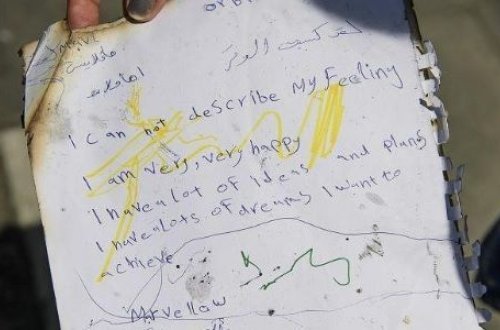 orbi
لقد كسبت الوتر
I can not describe My Feeling
I am very, very happy
I have a lot of ideas and plans
I have a lots of dreams I want to
achieve
Mrvellaw